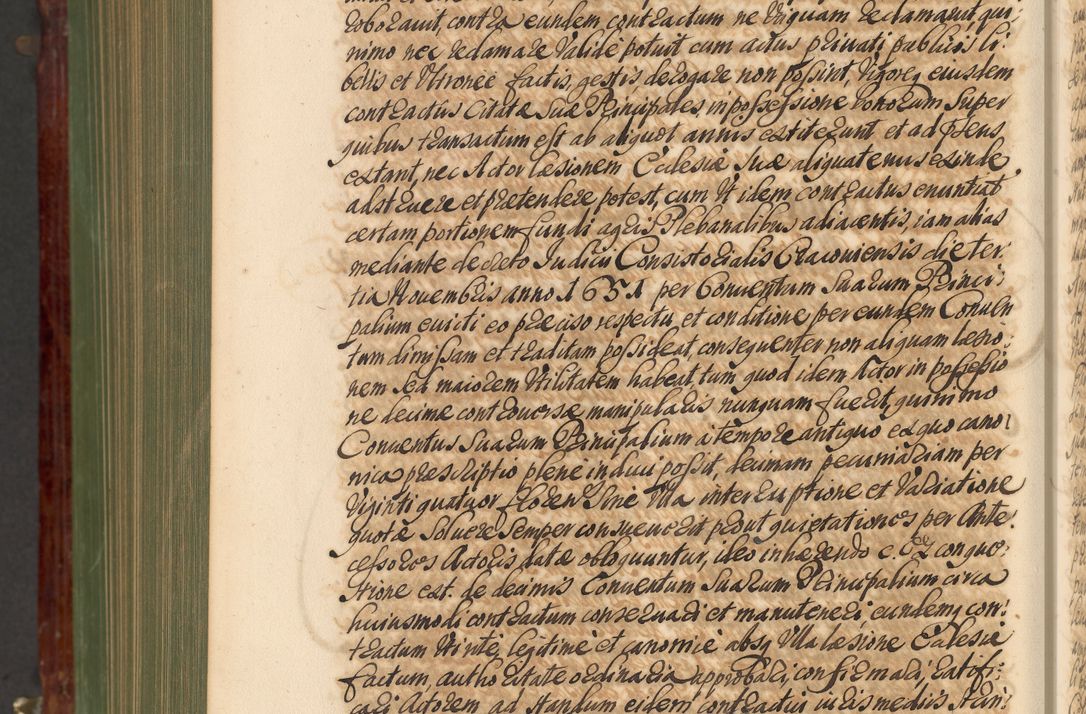 roboravit, contra eundem contractum ne unquam reclamavit qui:
nimo nec reclamare Valide potuit cum actus privati publicis li:
bellis et Utronee factis, gestis, derogare non possint, Vigore eiusdem
contractus Citatæ Suæ Principales, in possessione bonorum Super
quibus transactum est ab aliquot annis extiterunt et ad præns
extant, nec Actor læsionem Ecclesiæ Suæ aliquatenus exinde
adstruere et prætendere potest, cum Ut idem contractus enuntiat
certam portionem fundi agris Plebanalibus adiacentis, iam alias
mediante decreto Iudicii Consistorialis Cracoviensis die ter
tia Novembris anno 1651 per Conventum Suarum Princi:
palium evicti eo præciso respectu et conditione per eundem Conven
tum dimissam et traditam possideat, consequenter non aliquam læsio:
nem sed maiorem Utilitatem habeat, tum quod idem Actor in possessio
ne decimæ controversæ manipularis nunquam fuerit, quinimo
Conventus Suarum Principalium à tempore antiquo ex quo cano:
nica præscriptio plene induci possit, decimam pecuniariam per
Viginti quatuor floren Sine Ulla interruptione et Variatione
quotæ Solvere Semper consueverit prout quietationes per Ante:
cessores Actoris datæ obloquuntur, ideo inhærendo e. congru:
trione ext. de decimis Conventum Suarum Principalium circa
huiusmodi contractum conservari et manuteneri, eundemq con:
tractum Uti ritè, legitimè et canonicè absq Ulla læsione Ecclesiæ
factum, authoritate ordinaria approbari, confirmari, ratifi:
cari Actorem ad standum eidem contractui iuris mediis strin: